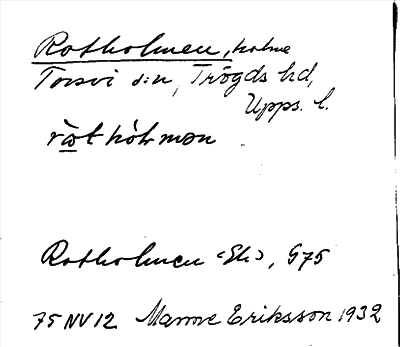 Rotholmen, holme
Torsvi sːn, Trögds hd,
Upps. l.
Rotholmen <Ek>, G75
75 NV 12 Manne Eriksson 1932